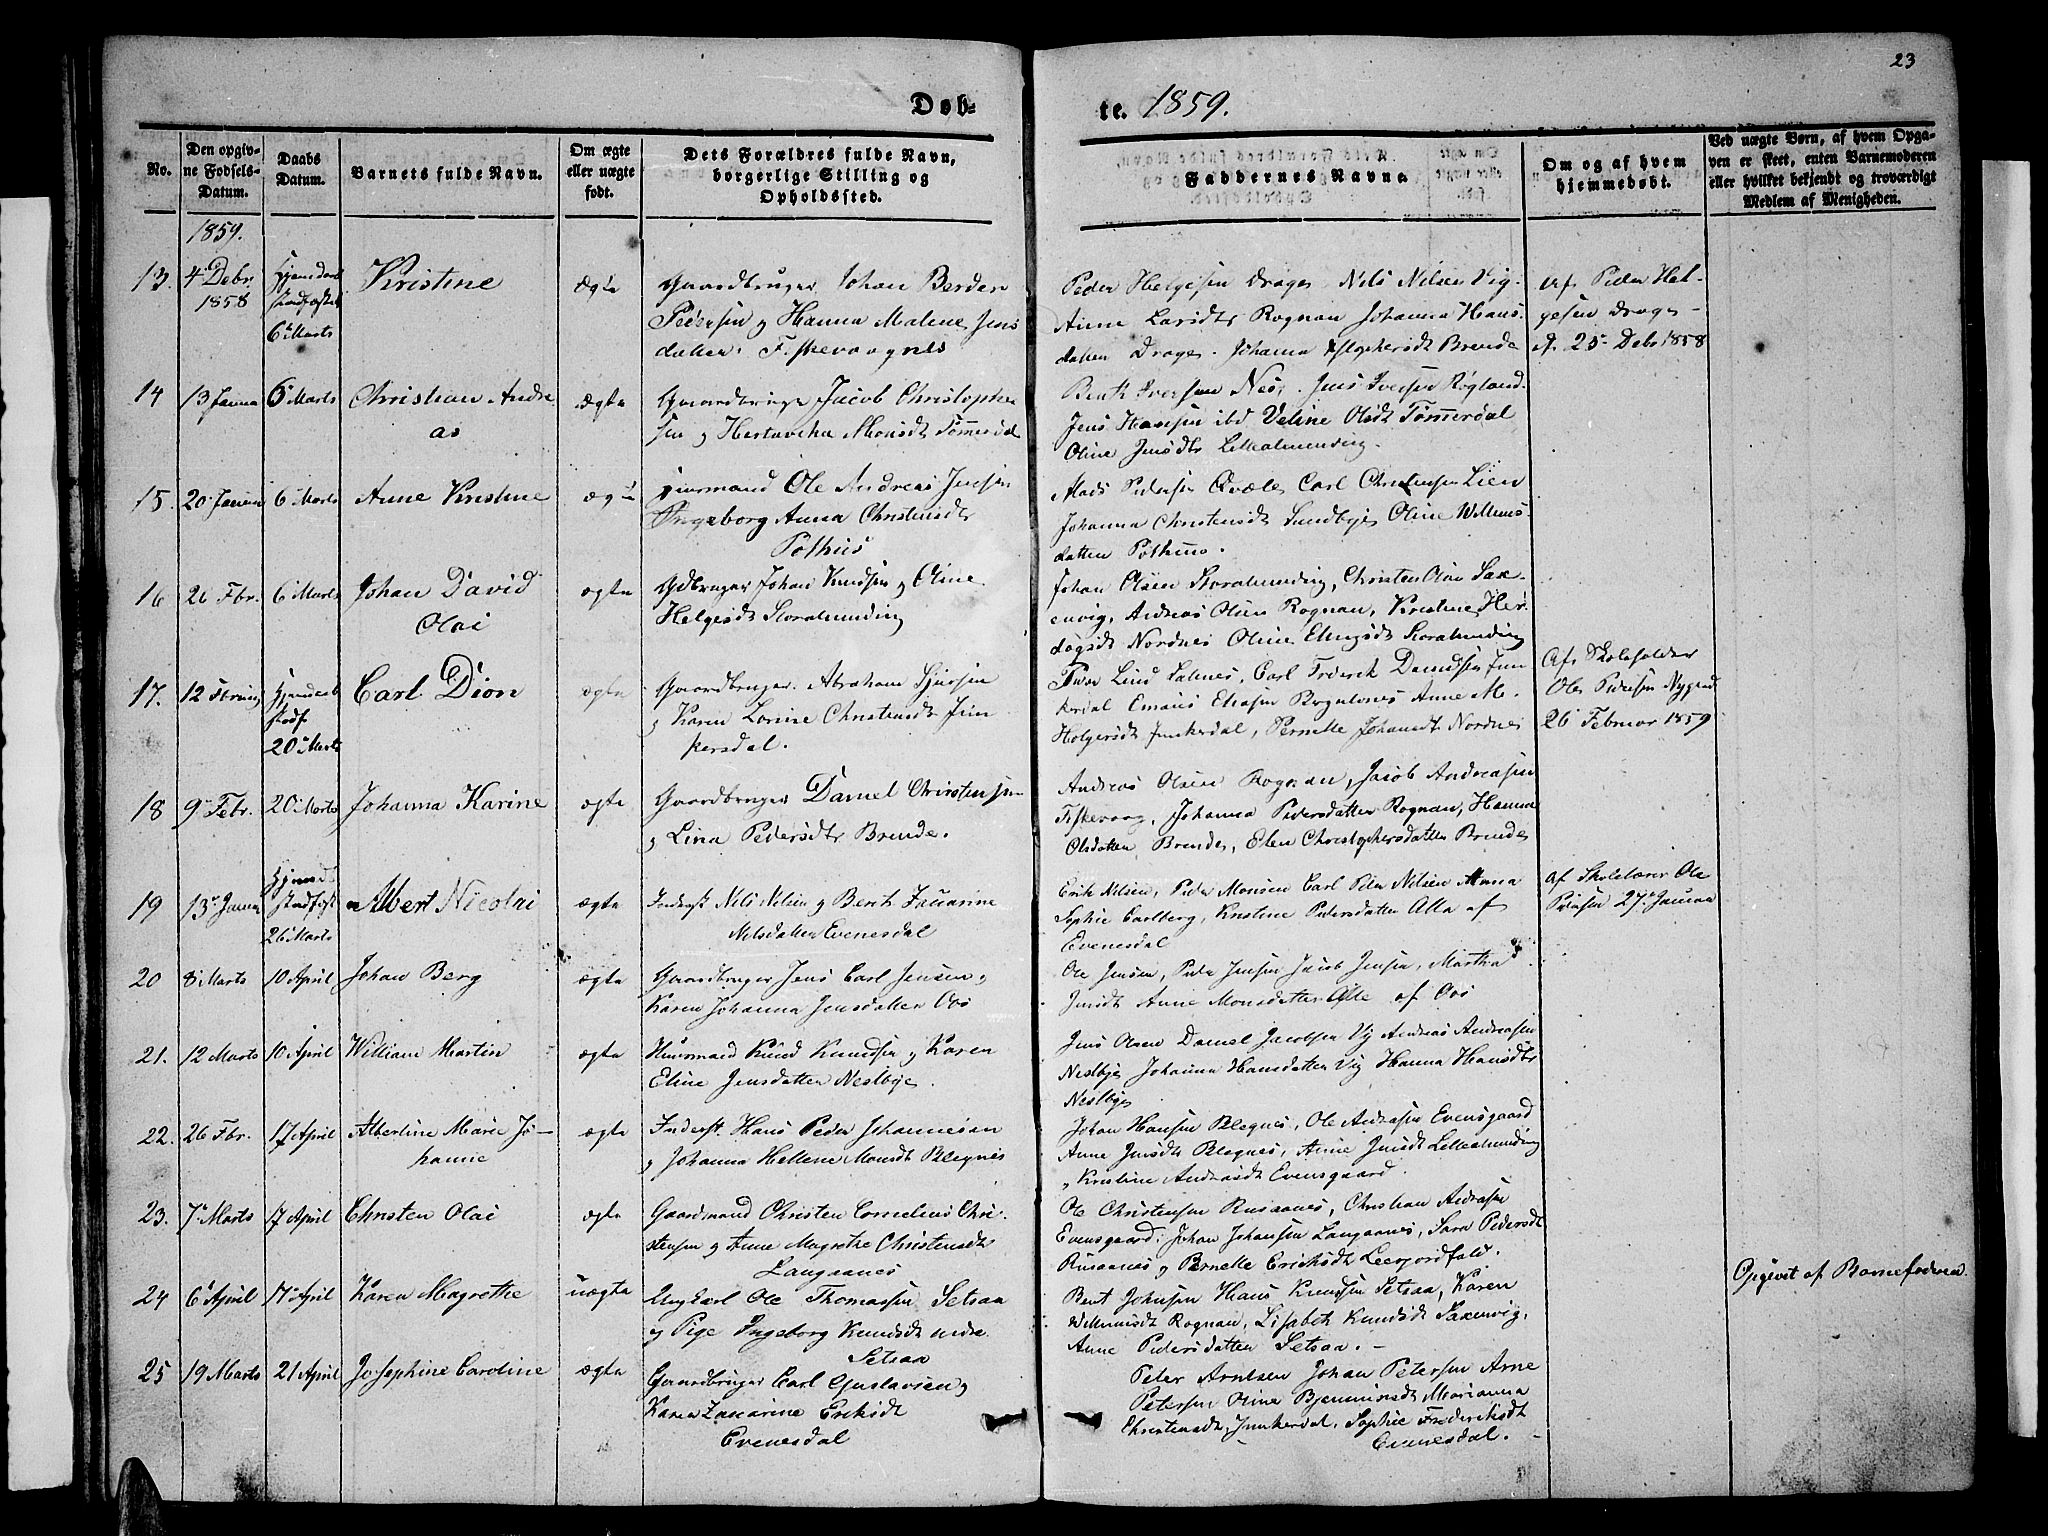 23
Døb-
te. 1859.
No.
Den opgiv-
ne Fødsels-
Datum.
Daabs
Datum.
Barnets fulde Navn.
Om ægte
eller uægte
født.
Dets Forældres fulde Navn,
borgerlige Stilling og
Opholdssted.
Faddernes Navne.
Om og af hvem
hjemmedøbt.
Ved uægte Børn, af hvem Opga-
ven er skeet, enten Barnemoderen
eller hvilket bekjendt og troværdigt
Medlem af Menigheden.
1859.
13. 4 Debr. 1858
6 Marts
Kristine
ægte
Gaardbruger Johan Berder
Pedersen og Hanna Malene Jens
datter. Fiskevaagnes
Peder Helgesen Drage, Nils Nilsen Vig
Anne Larsdtr Rognan Johanna Hans
datter Drage. Johanna Brende
Af Peder Hel-
gesen Drage
d. 25 Debr 1858
14 13 Janua 6 Marts
Christian Andre
as
ægte
Gaardbruger Jacob Christopher
sen og Monsdt Tømmerdal
Bent Iversen Nes, Jens Iversen Røgland.
Jens Hansen ibd Veline Olsdt Tømerdal
Oline Jensdtr Lillealmending.
15. 20 Januar 6 Marts
Anne Kristine
ægte
Huusmand Ole Andreas Jensen
Ingeborg Anna Christensdtr
Pothus
Mads Pedersen Qvæle, Carl Christensen Lien
Johanna Christensdt Sundbye, Oline Willums-
datter Pothus.
16 26 Fbr. 6 Marts
Johan David
Olai
ægte
Gdbruger Johan Knudsen og Oline
Helgesdt Storalmending
Johan Olsen Storalmending, Christen Olsen Sax-
envig, Andreas Olsen Rognan, Kristine Her
Nordnes Oline Storalmending
17. 12 Febru
20 Marts
Carl Dion
ægte
Gaardbruger Abraham Sjursen
og Karen Lovise Christensdt Jun
kersdal.
Lind Saltnes, Carl Frederik Davidsen Jun
kerdal Emaus Eliasen Anne M.
Holgersdt Junkerdal, Pernelle Johansdt Nordnes
Af Skoleholder
Ole Pedersen Nygaard
26 Februar 1859
18 9 Febr. 20 Marts
Johanna Karine
ægte
Gaardbruger Daniel Christensen
og Lina Pedersdtr Brende.
Andreas Olsen Rognan, Jacob Andreasen
Fiskevaag, Johanna Pedersdatter Rognan, Hanna
Olsdatter Brende, Elen Christophersdatter Brende
19 13 Janua
26 Marts
Albert Nicolai
ægte
Inderst Nils Nilsen og Berit Zakarine
Nilsdatter Evenesdal
Erik Nilsen, Peder Monsen Carl Peter Nilsen Anna
Sophie Carlberg, Kristine Pedersdatter Alla af
Evenesdal
af Skolelærer Ole
Petersen 27 Januar
20 8 Marts 10 April
Johan Berg
ægte
Gaardbruger Jens Carl Jensen og
Karen Johanna Jensdatter Oos
Ole Jensen, Peder Jensen Jacob Jensen, Martha
Jensdt Anne Monsdatter Alle af Oos
21. 12 Marts 10 April
William Martin
ægte
Huusmand Knud Knudsen og Karen
Eline Jensdatter Nestbye.
Jens Olsen Daniel Jacobsen Vig Andreas Andreasen
Nestbye Johanna Hansdatter Vig Hanna Hansdtr
Nestbye
22. 26 Fbr. 17 April
Albertine Marie Jo-
hanne
ægte
Inderst. Hans Peder Johannesen
og Johanna Hellene Monsdt Blegnes
Johan Hansen Blegnes, Ole Andreasen Evensgaard
Anne Jensdt Blegnes, Anne Jensdt Lillealmending
og Kristine Andreasdt Evensgaard.
23. 7 Marts 17 April
Christen Olai
ægte
Gaardmand Christen Cornelius Chri-
stensen og Anne Magrethe Christensdt
Langaanes
Ole Christensen Rusaanes, Christian Andreasen
Evensgaard, Johan Johansen Langaanes, Sara Pedersdt
Rusaanes og Pernelle Eriksdt
24 6 April 17 April
Karen Magrethe
uægte
Ungkarl Ole Thomassen Setsaa
og Pige Ingeborg Knudsdt nedre
Setsaa
Bent Johnsen Hans Knudsen Setsaa, Karen
Willumsdt Rognan, Lisabeth Knudsdt Saxenvig,
Anne Pedersdatter Setsaa.
Opgivet af Barnefaderen
25 19 Marts 21 April
Josephine Caroline
ægte
Gaardbruger Carl Gustavsen og
Karen Zakarine Eriksdt
Evenesdal
Peter Arntsen Johan Petersen Arne
Petersen Oline Marianna
Christensdt, Junkerdal, Sophie Frederiksdt
Evenesdal.